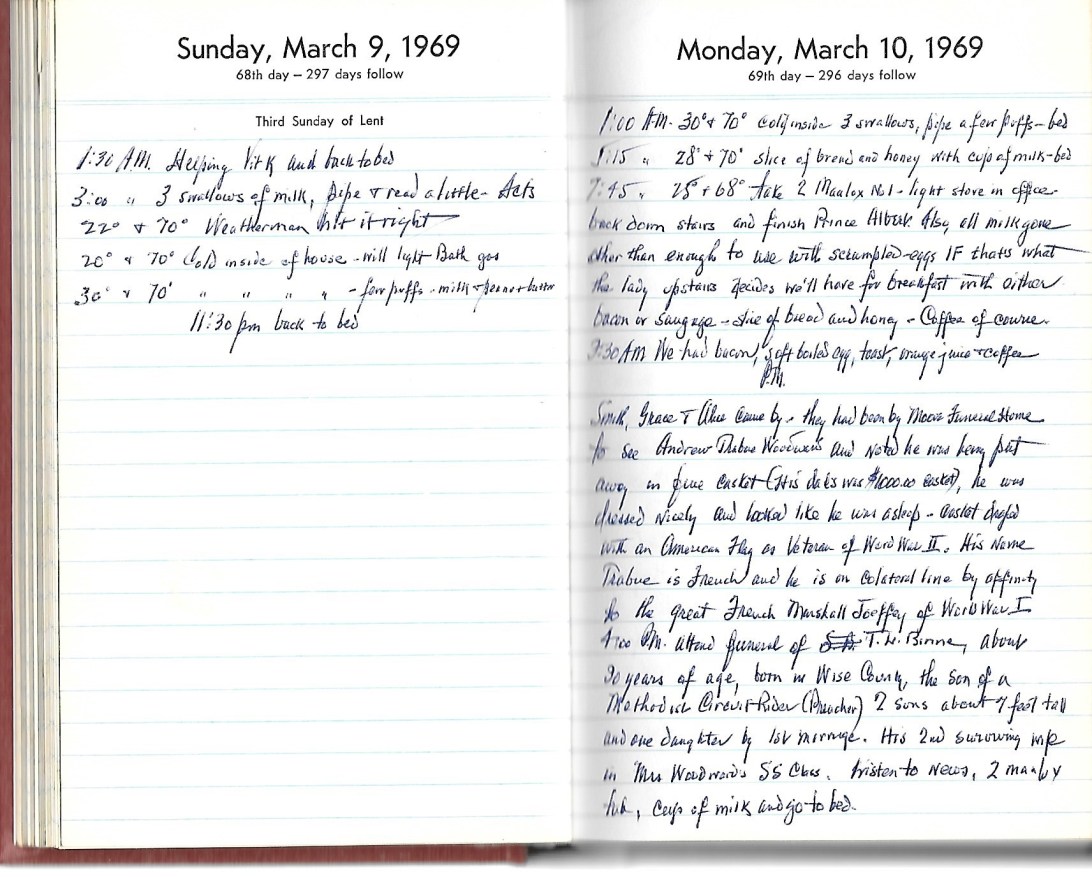 Sunday, March 9, 1969
68th day – 297 days follow
Third Sunday of Lent
1:30 A.M. Helping Vit K and back to bed
3:00 " 3 swallows of milk, pipe & read a little - Acts
22° & 70° Weatherman hit it right
20° & 70° Cold inside of house - will light Bath gas
30° & 70° " " " " - few puffs - milk & peanut butter
11:30 pm back to bed
Monday, March 10, 1969
69th day – 296 days follow
1:00 A.M. 30° & 70° Cold inside 3 swallows, pipe a few puffs - bed
1:15 " 28° + 70° slice of bread and honey with cup of milk - bed
7:45 " 28° & 68° take 2 Maalox No 1 - light stove in office -
back down stairs and finish Prince Albert. Also, all milk gone
other than enough to use with scrambled-eggs IF thats what
the lady upstairs decides we'll have for breakfast with either
bacon or sausage - slice of bread and honey - Coffee of course.
9:30 AM We had bacon, soft boiled egg, toast, orange juice & coffee
P.M.
Smith, Grace & Alice came by - they had been by Moore Funeral Home
to see Andrew Trabue and noted he was being put
away in fine casket (His dads was $1000.00 casket), he was
dressed nicely and looked like he was asleep - casket
with an American Flag as Veteran of Word War II. His Name
Trabue is French and he is on Colateral line by affinity
to the great French Marshall Joeffey of World War I
4:00 P.M. attend funeral of T. W. Binne, about
90 years of age, born in Wise County, the son of a
Methodist Circuit Rider (Preacher) 2 sons about 7 feet tall
and one daughter by 1st marriage. His 2nd surviving wife
in Mrs Woodward's SS Class. listen to News, 2 maalox
tab, cup of milk and go to bed.